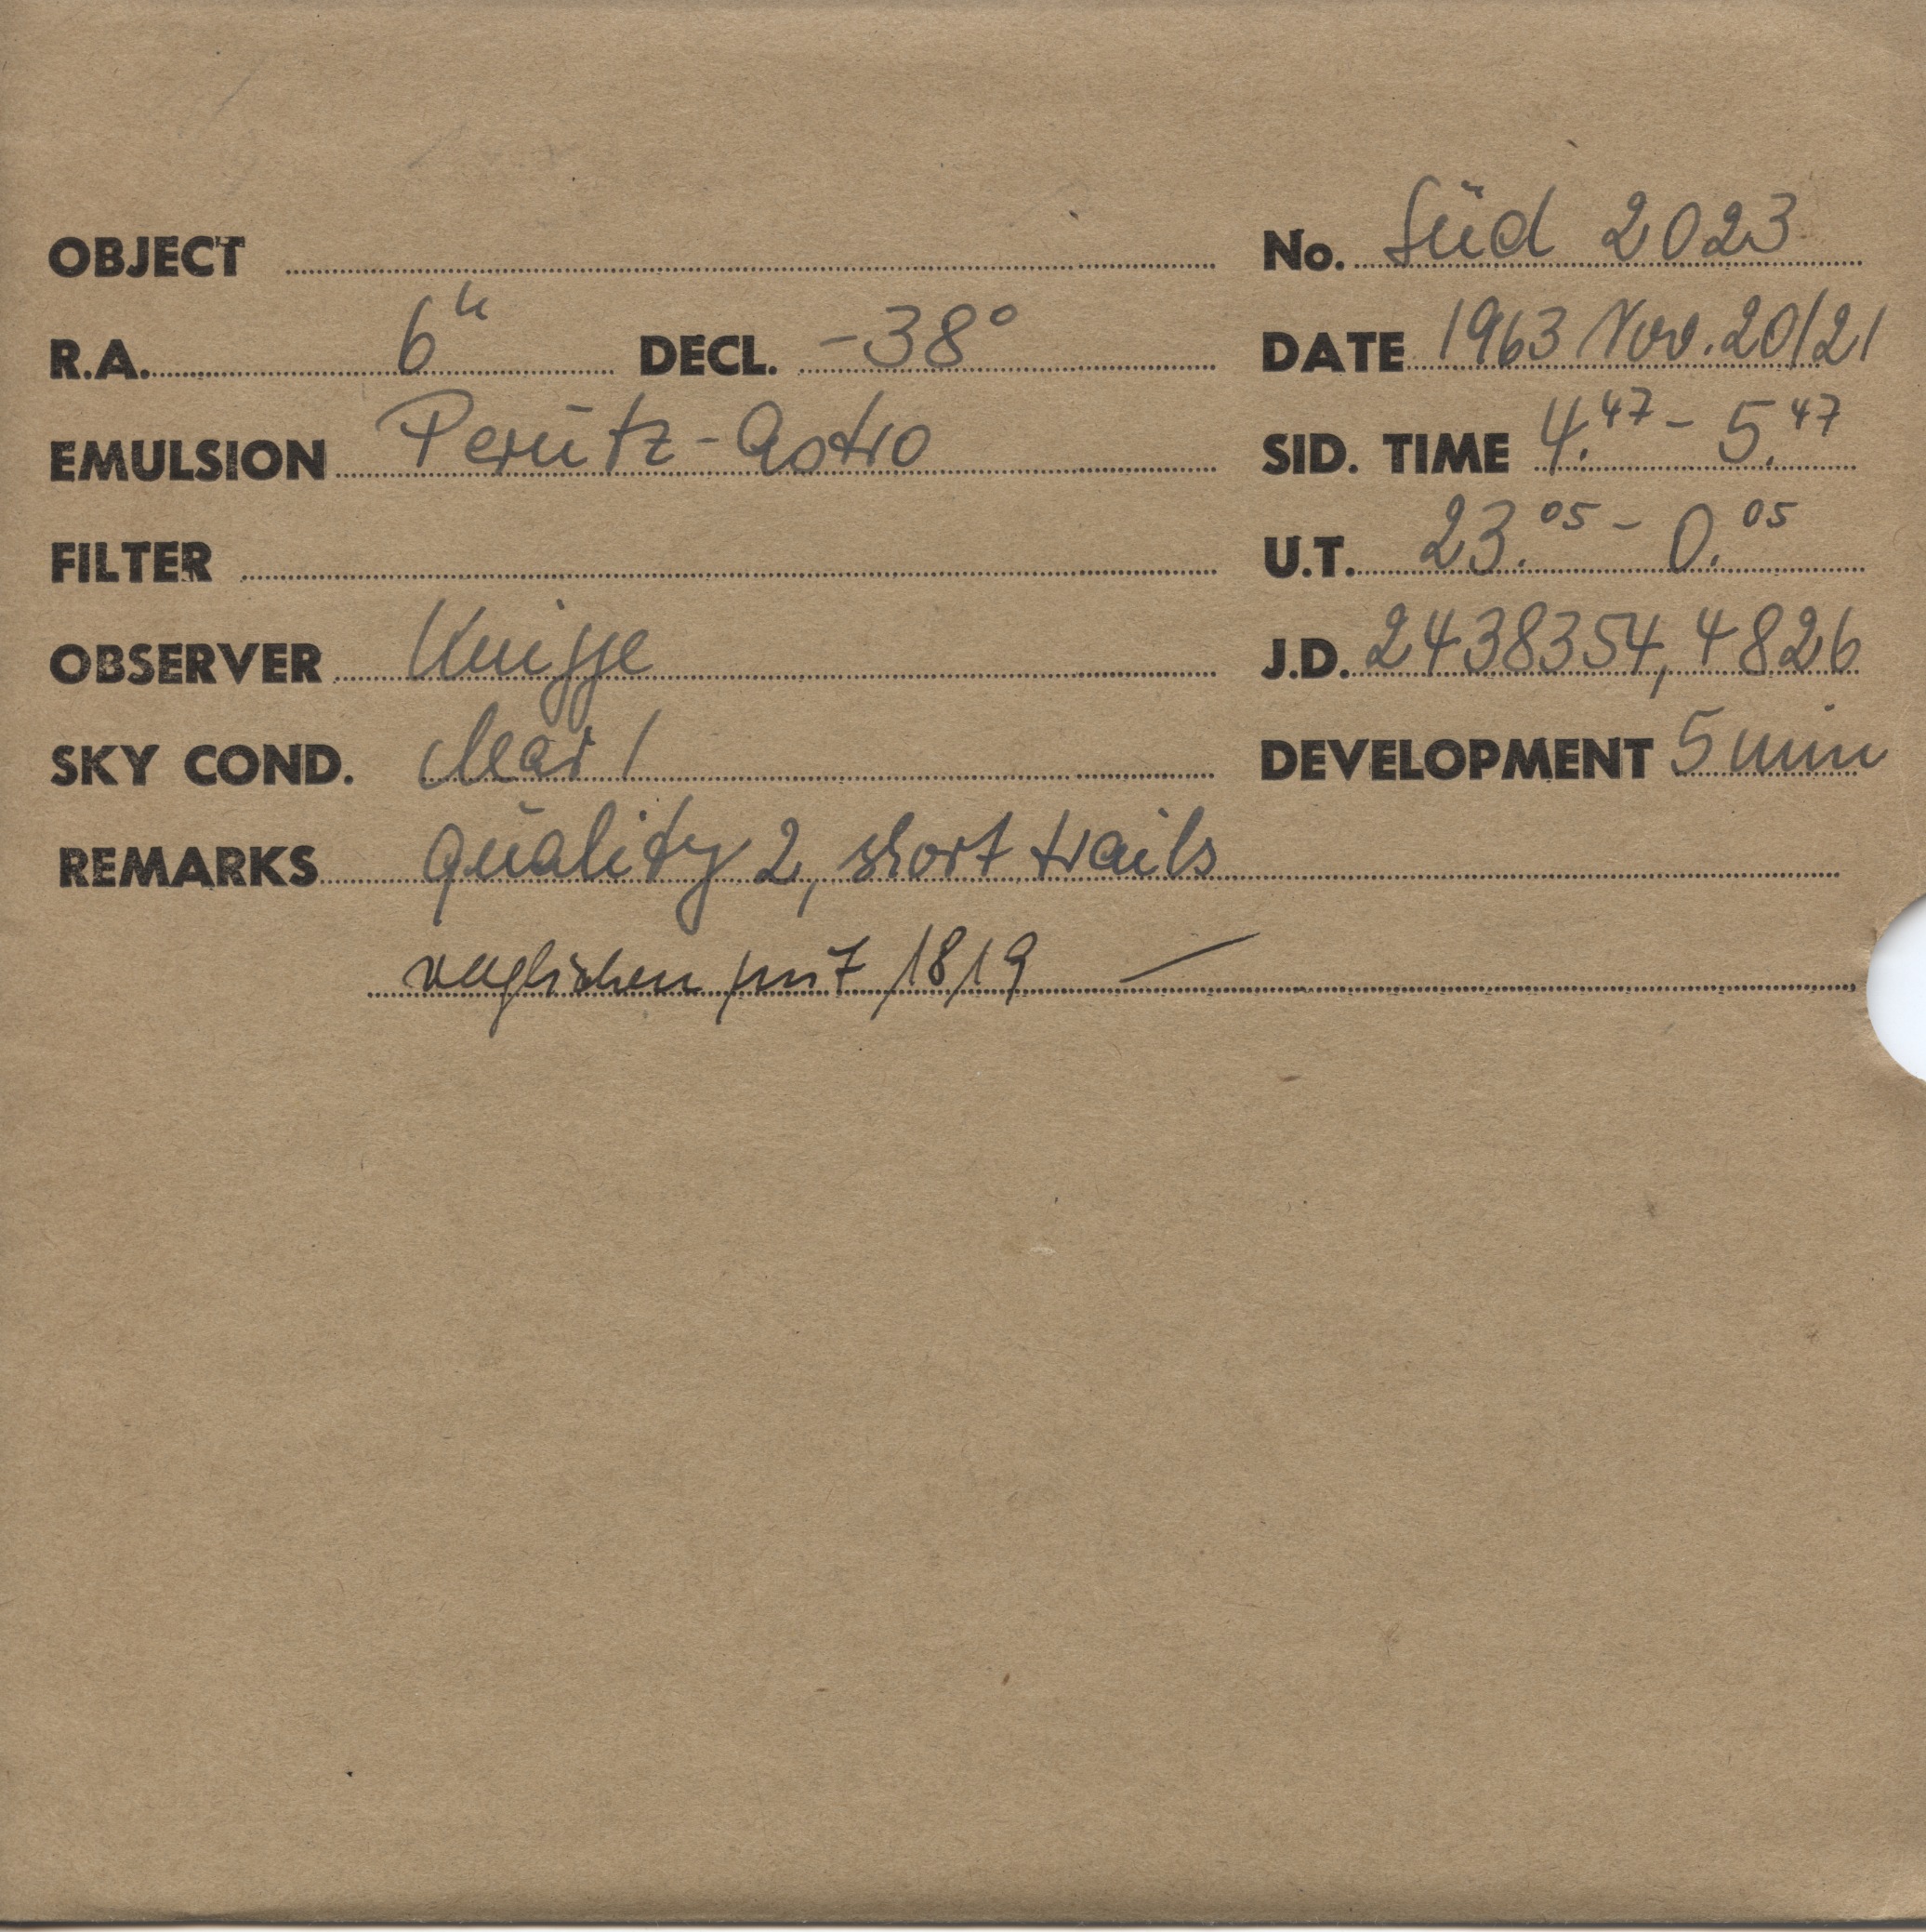 OBJECT No. Süd 2023
R.A. 6h DECL. -38° DATE 1963 Nov. 20/21
EMULSION Perutz-Astro SID. TIME 4.47 - 5.47
FILTER U.T. 23.05 - 0.05
OBSERVER Knigge J.D. 2438354,4826
SKY COND. clear 1 DEVELOPMENT 5 min
REMARKS quality 2, short trails
verglichen mit 1819 —